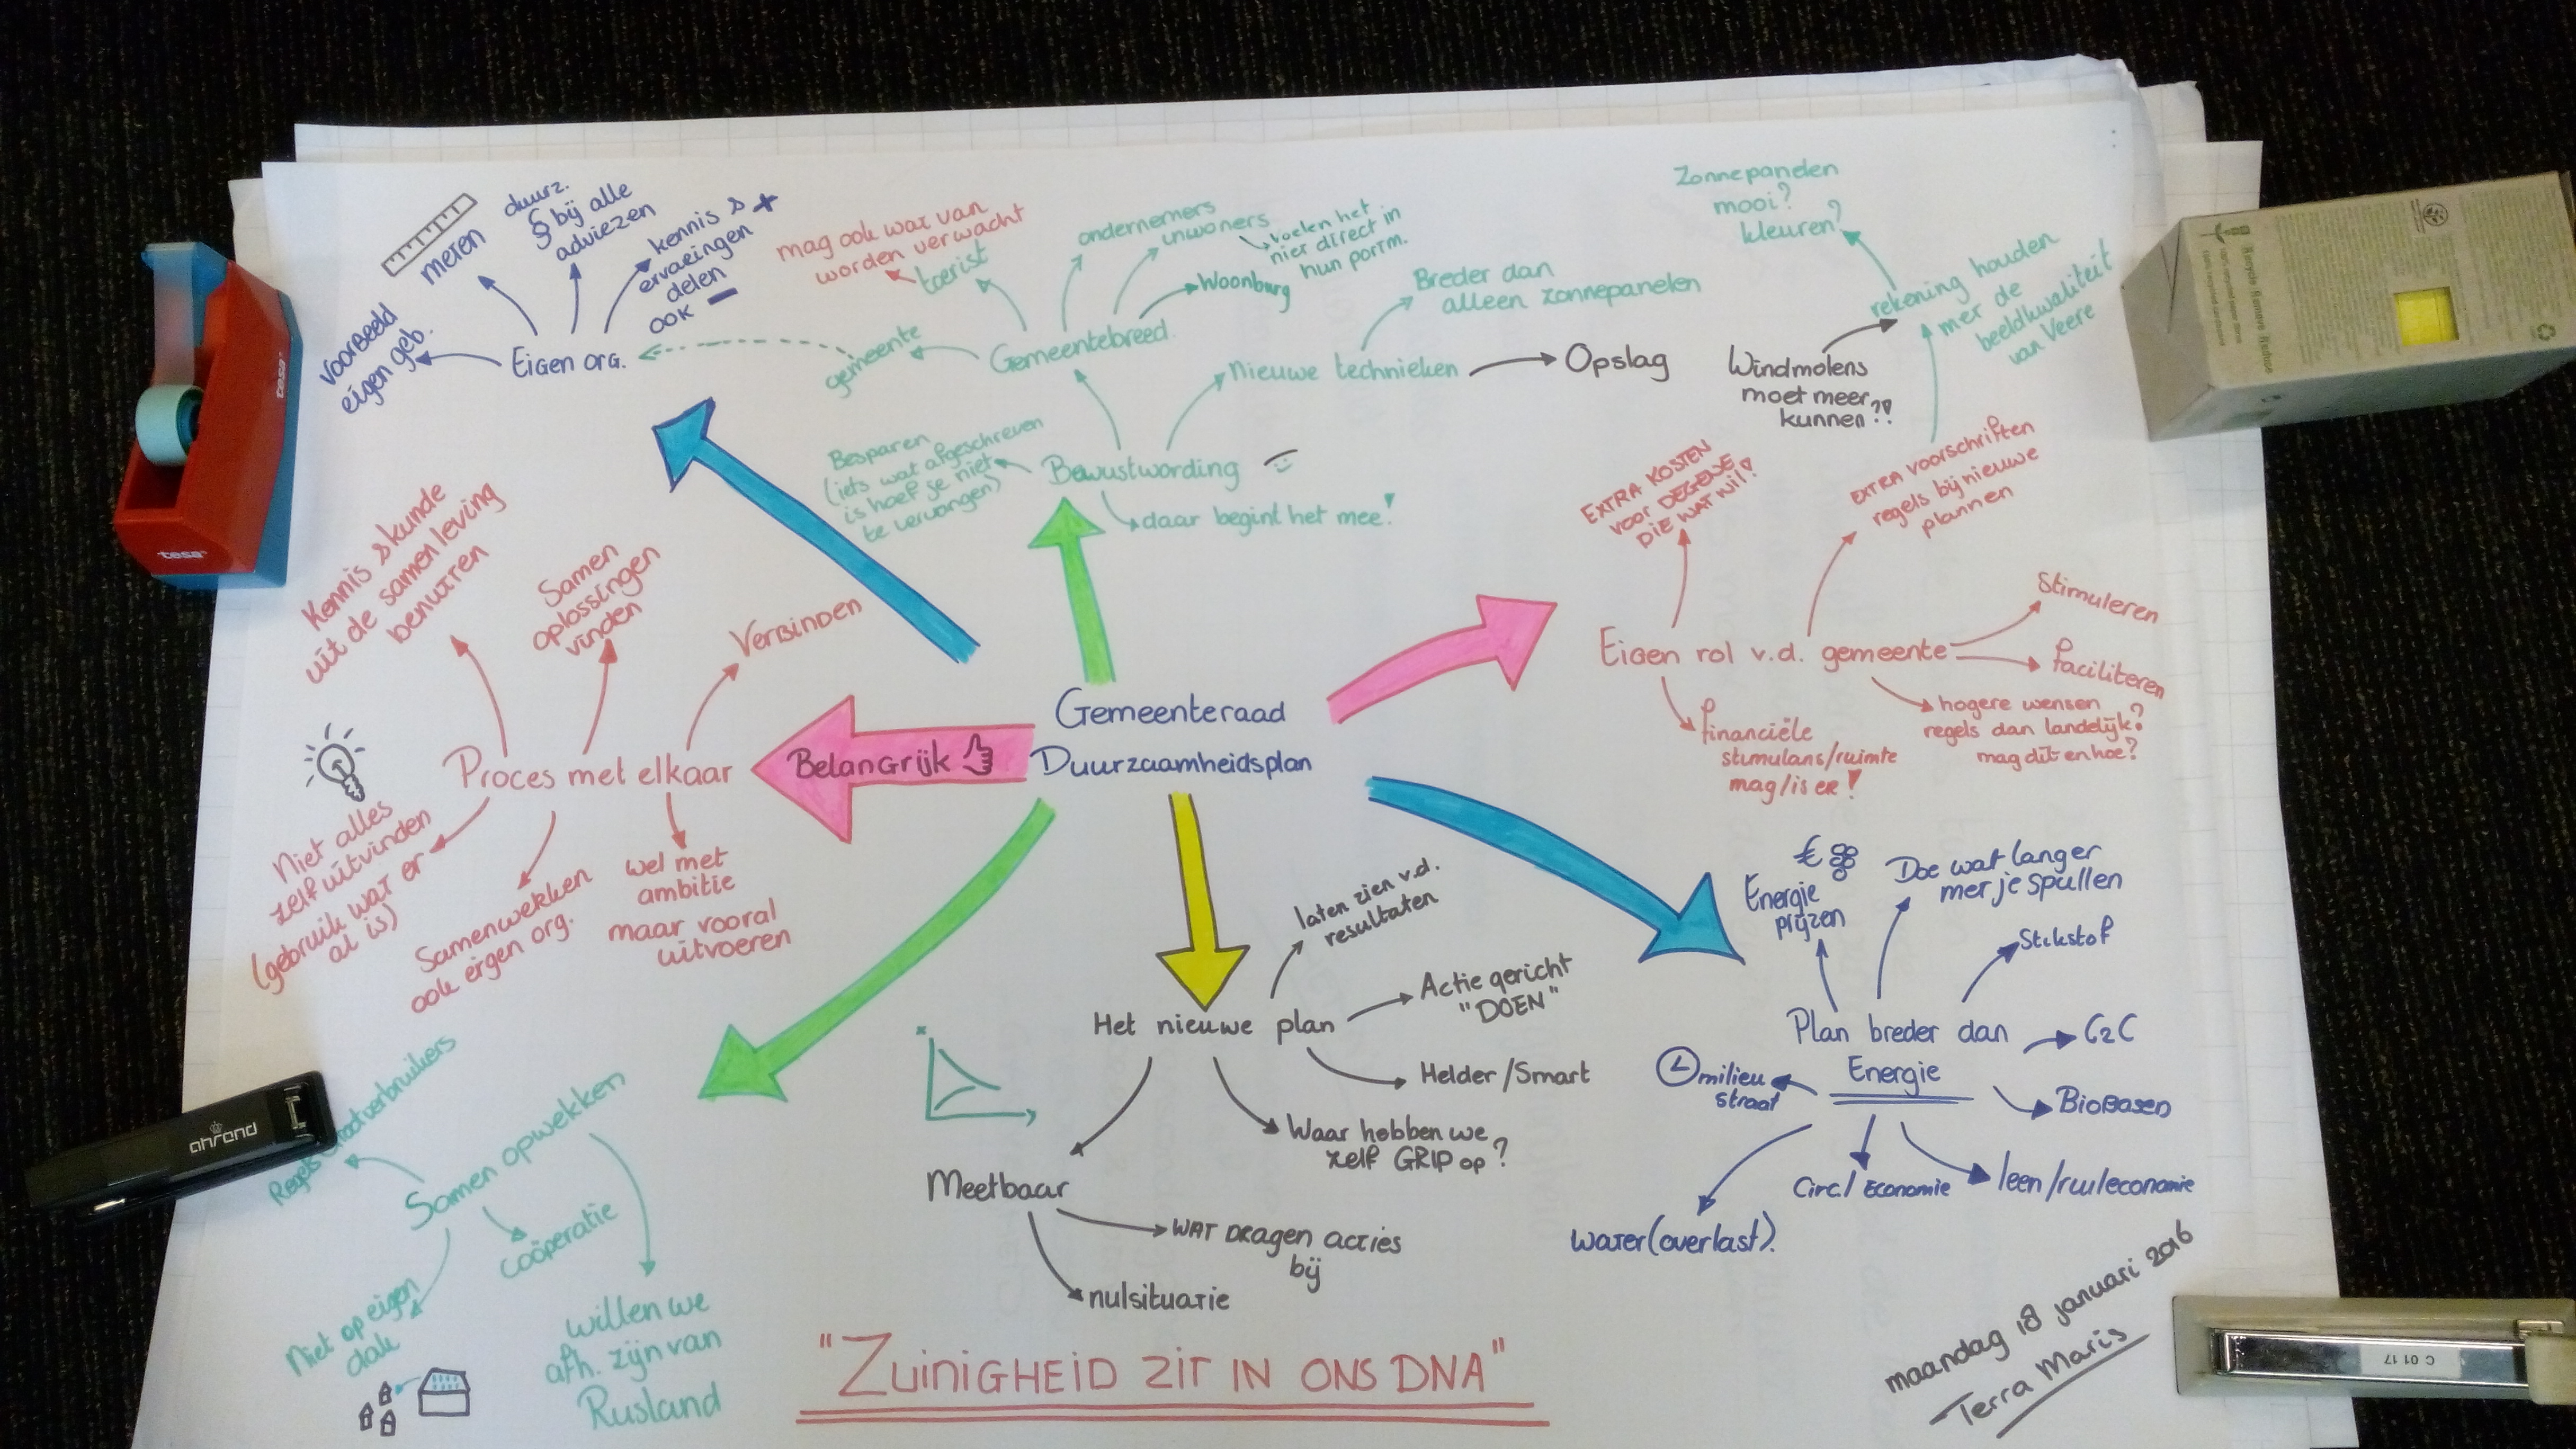 Gemeenteraad
Duurzaamheidsplan
Eigen org.
voorbeeld
eigen geb.
meten
duurz.
§ bij alle
adviezen
kennis &
ervaringen
delen
ook
Bewustwording
daar begint het mee!
Besparen
(iets wat afgeschreven
is hoef je niet
te vervangen)
Gemeentebreed
gemeente
toerist
mag ook wat van
worden verwacht
ondernemers
inwoners
voelen het
hier direct in
hun portm.
Woonburg
Nieuwe technieken
Breder dan
alleen zonnepanelen
Opslag
Eigen rol v.d. gemeente
EXTRA KOSTEN
voor DEGENE
DIE WAT WIL!
EXTRA voorschriften
regels bij nieuwe
plannen
rekening houden
met de
beeldkwaliteit
van Veere
Zonnepanelen
mooi?
kleuren?
Windmolens
moet meer
kunnen?!
Stimuleren
faciliteren
hogere wensen
regels dan landelijk?
mag dit en hoe?
financiële
stimulans/ruimte
mag/is er!
Plan breder dan
Energie
€
Energie
prijzen
Doe wat langer
met je spullen
Stikstof
C2C
BioBased
leen/ruileconomie
Circ./Economie
water(overlast).
milieu
straat
Het nieuwe plan
laten zien v.d.
resultaten
Actie gericht
"DOEN"
Helder/Smart
Waar hebben we
zelf GRIP op?
Meetbaar
WAT DRAGEN acties
bij
nulsituatie
Samen opwekken
coöperatie
willen we
afh. zijn van
Rusland
Niet op eigen
dak
Belangrijk
Proces met elkaar
Kennis & kunde
uit de samenleving
benutten
Samen
oplossingen
vinden
VERBINDEN
Niet alles
zelf uitvinden
(gebruik wat er
al is)
Samenwekken
ook eigen org.
wel met
ambitie
maar vooral
uitvoeren
"ZUINIGHEID ZIT IN ONS DNA"
maandag 18 januari 2016
Terra Maris
tesa
tesa
ahrend
Recycle Remove Reduce
C 01 17